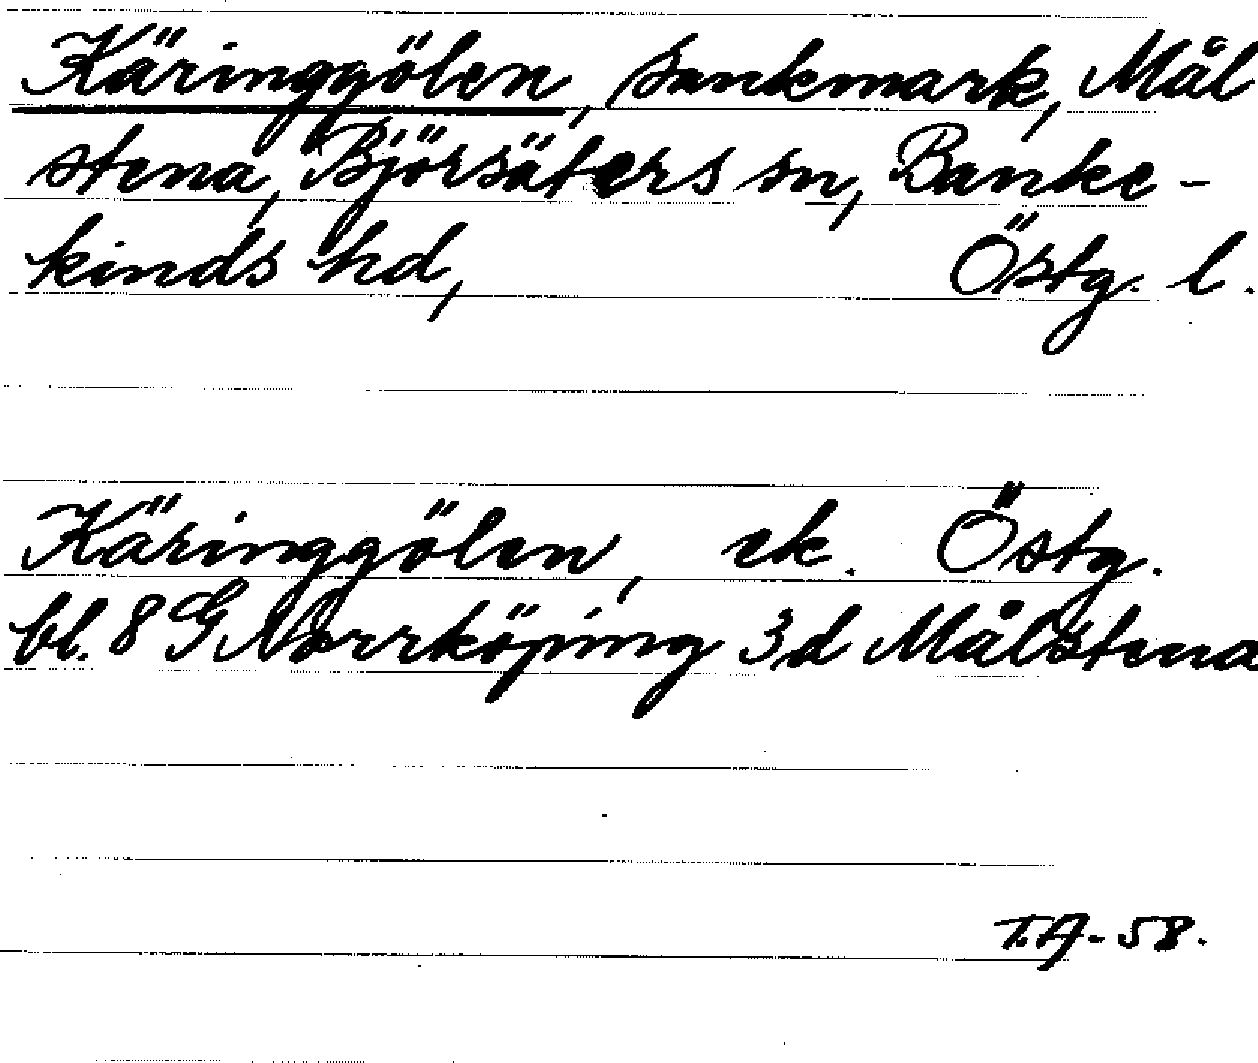 Käringgölen, sankmark, Mål
stena, Björsäters sn, Banke-
kinds hd, Östg. l.
Käringgölen, ek. Östg.
bl. 8 G Norrköping 3d Målstena
T.A-58.